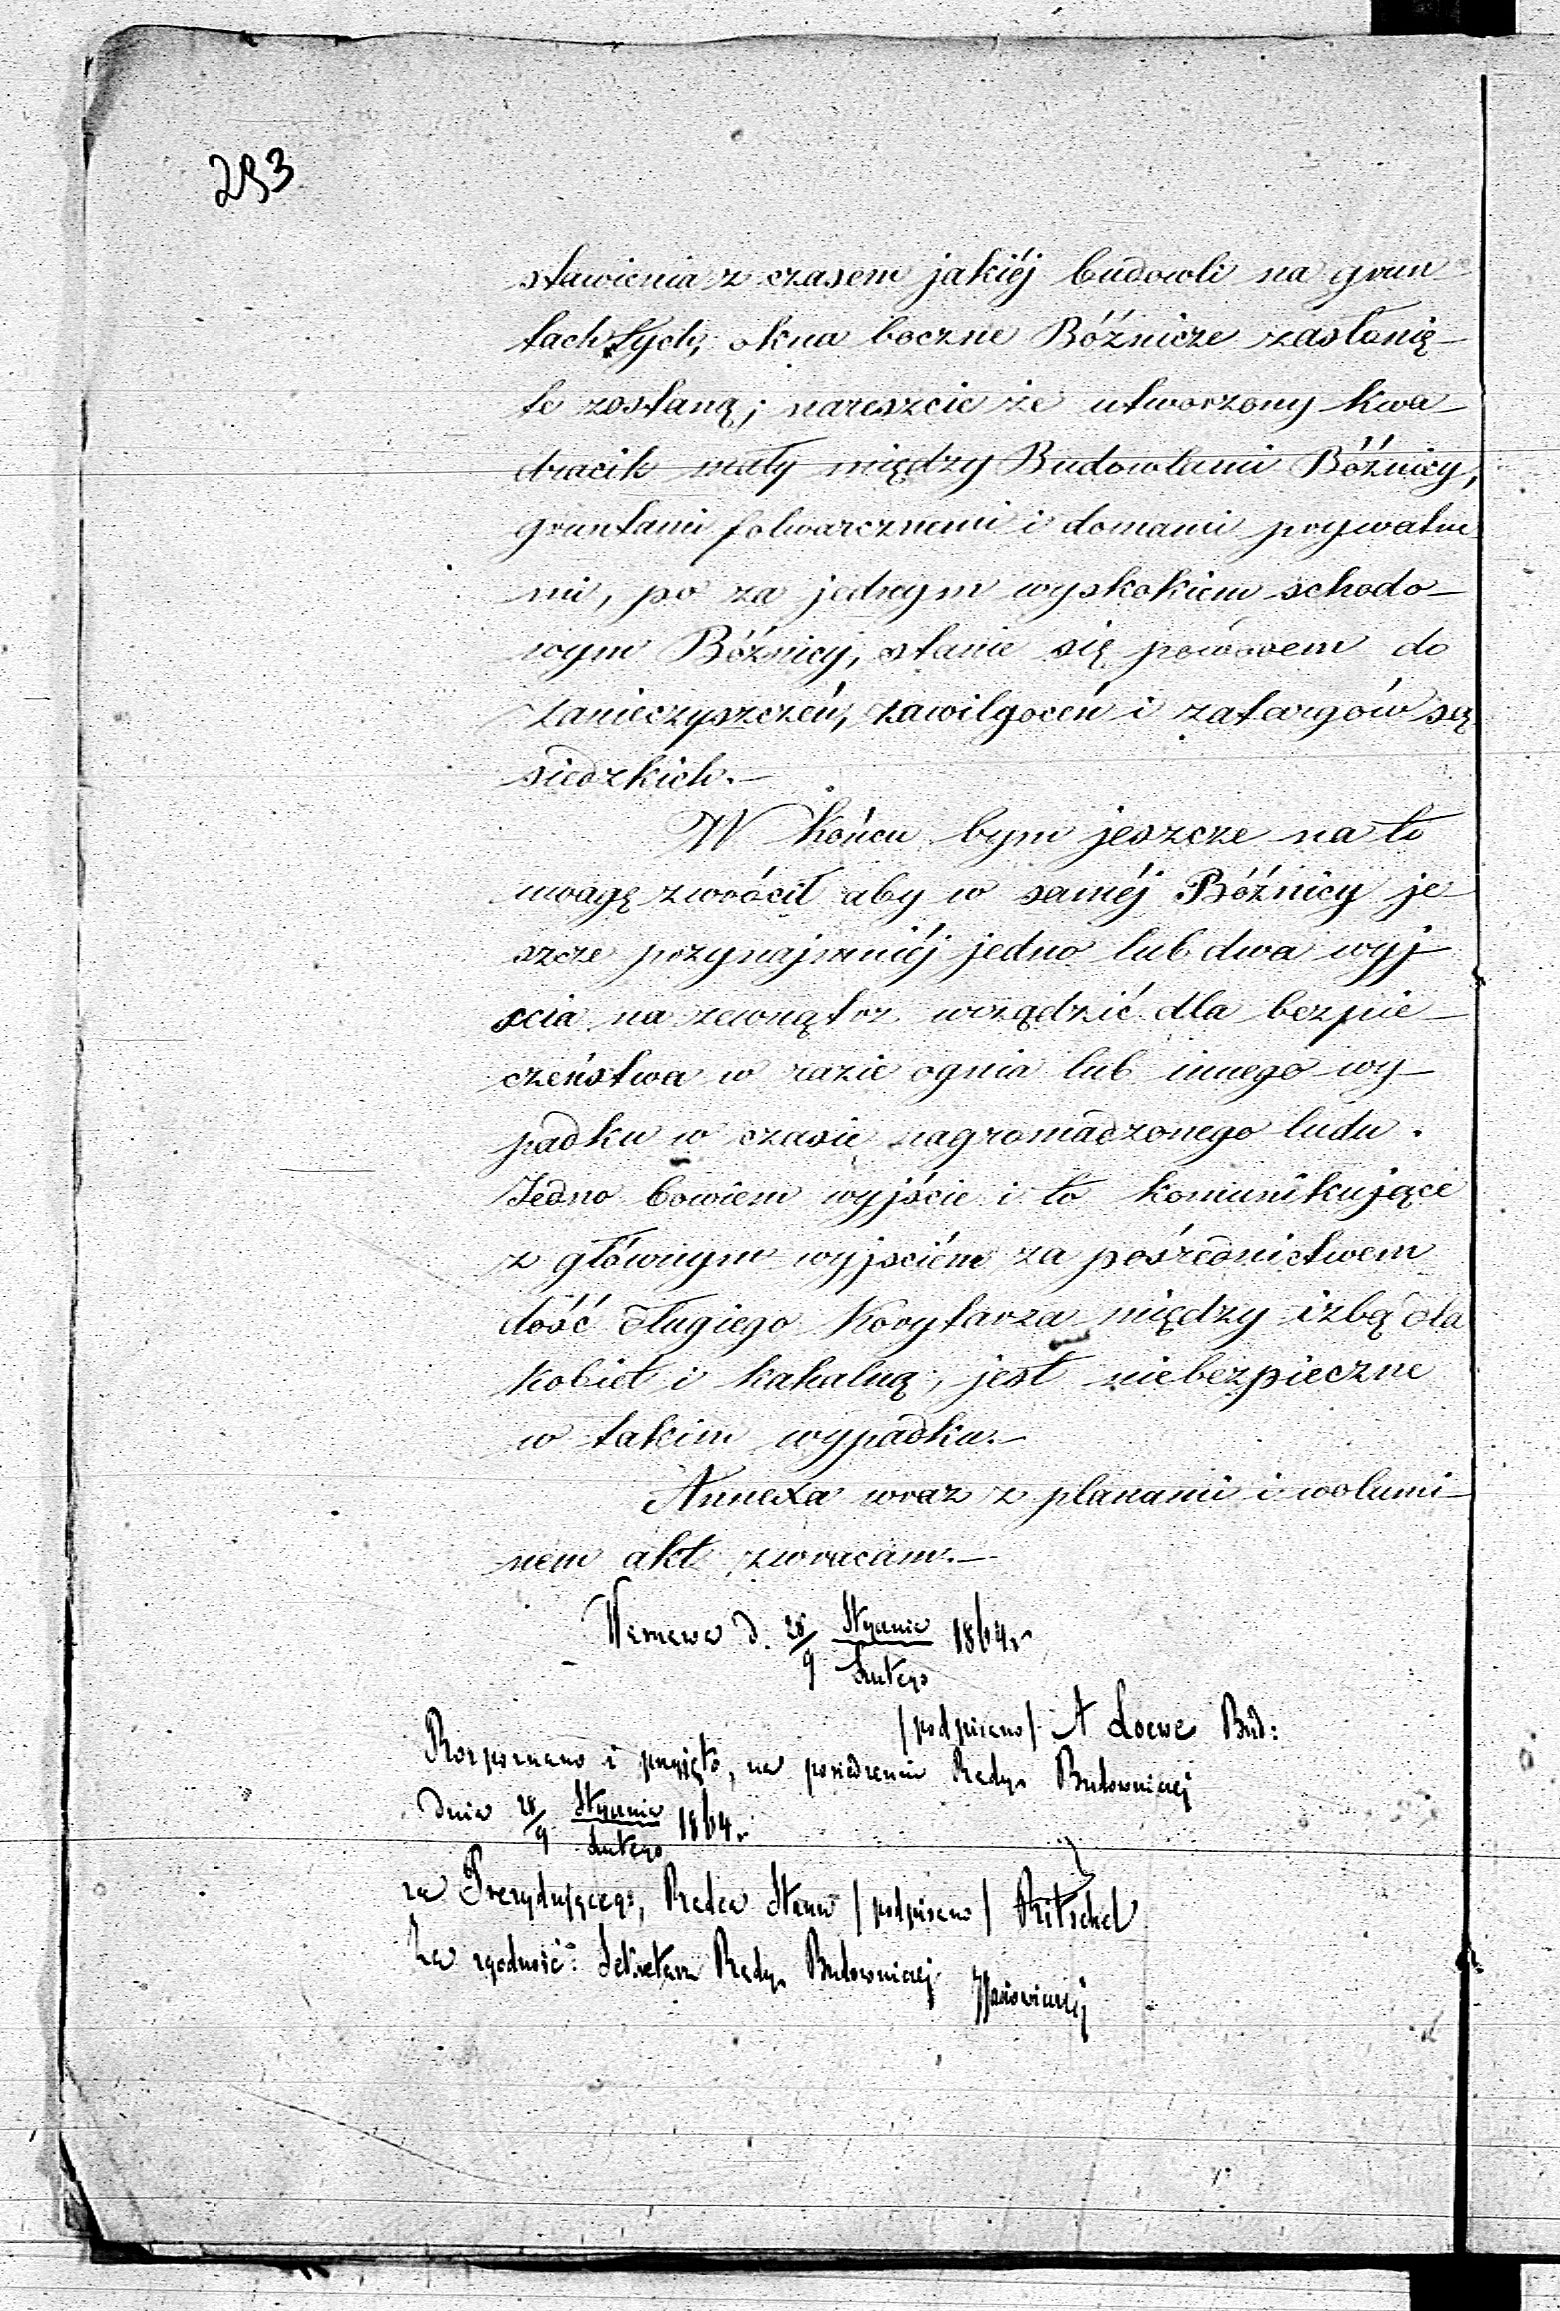 293
stawienia z czasem jakiéj budowli na grun
tach tych, okna boczne Bóźnicze zasłonię-
te zostaną; nareszcie że utworzony kwa-
dracik mały między Budowlami Bóźnicy,
gruntami folwarcznemi i domami prywatne
mi, po za jednym wyskokiem schodo-
wym Bóźnicy, stanie się powodem do
zanieczyszczeń, zawilgoceń i zatargów są
siedzkich.-
W końcu bym jeszcze na to
uwagę zwrócił aby w saméj Bóźnicy je-
szcze przynajmniéj jedno lub dwa wyj-
scia na zewnątrz urządzić dla bezpie-
czeństwa w razie ognia lub innego wy-
padku w czasie nagromadzonego ludu.
Jedno bowiem wyjście i to komunikujące
z głównym wyjsciém za pośrednictwem
dość długiego Korytarza między izbą dla
kobiet i kahalną, jest niebezpieczne
w takim wypadku.-
Annexa wraz z planami i wolumi-
nem akt zwracam.-
Warszawa d. 28/9 Stycznia/Lutego 1864 r
/podpisano/ A Loewe Bud:
Rozpoznano i przyjęto, na posiedzeniu Rady Budowniczéj
Dnia 28/9 Stycznia/Lutego 1864 r
za Prezydującego, Radca Stanu /podpisano/ Ritschel
Za zgodność: Sekretarz Rady Budowniczéj